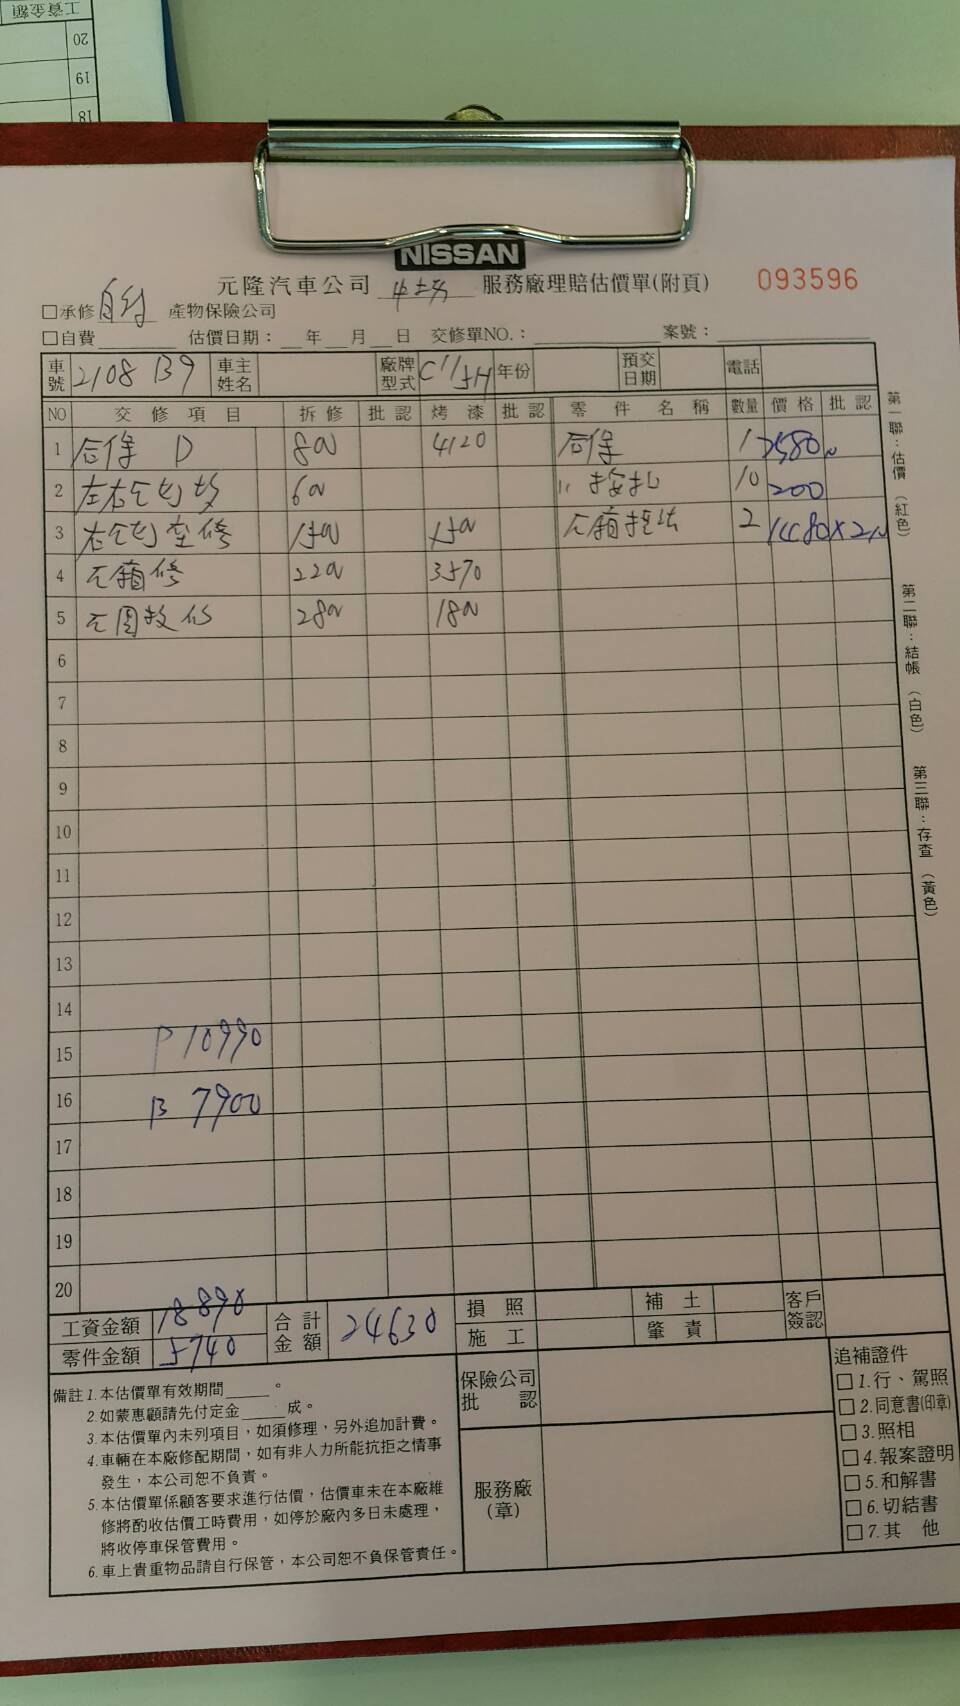 工資金額
20
19
18
NISSAN
元隆汽車公司 服務廠理賠估價單(附頁) 093596
□承修 自付 產物保險公司
□自費 估價日期： 年 月 日 交修單NO.： 案號：
車號 2108 B9 車主姓名 廠牌型式 C11 JH 年份 預交日期 電話
NO 交修項目 拆修 批認 烤漆 批認 零件名稱 數量 價格 批認
1 后保 D 800 4120 后保 1 2580
2 600 10 200
3 1500 1500 2 1480×2
4 2200 3570
5 2800 1800
6
7
8
9
10
11
12
13
14
15 P 10990
16 B 7900
17
18
19
20
工資金額 18890 合計金額 24630 損照 補土 客戶簽認
零件金額 5740 施工 肇責
備註 1.本估價單有效期間 。
2.如蒙惠顧請先付定金 成。
3.本估價單內未列項目，如須修理，另外追加計費。
4.車輛在本廠修配期間，如有非人力所能抗拒之情事
發生，本公司恕不負責。
5.本估價單係顧客要求進行估價，估價車未在本廠維
修將酌收估價工時費用，如停於廠內多日未處理，
將收停車保管費用。
6.車上貴重物品請自行保管，本公司恕不負保管責任。
保險公司批認
服務廠(章)
追補證件
□1.行、駕照
□2.同意書(印章)
□3.照相
□4.報案證明
□5.和解書
□6.切結書
□7.其 他
第一聯：估價（紅色）
第二聯：結帳（白色）
第三聯：存查（黃色）